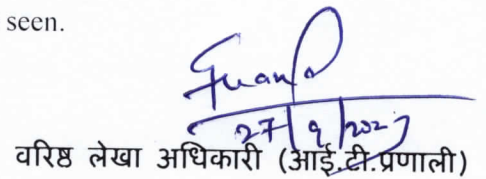 seen.
27/9/202
वरिष्ठ लेखा अधिकारी (आई.टी.प्रणाली)